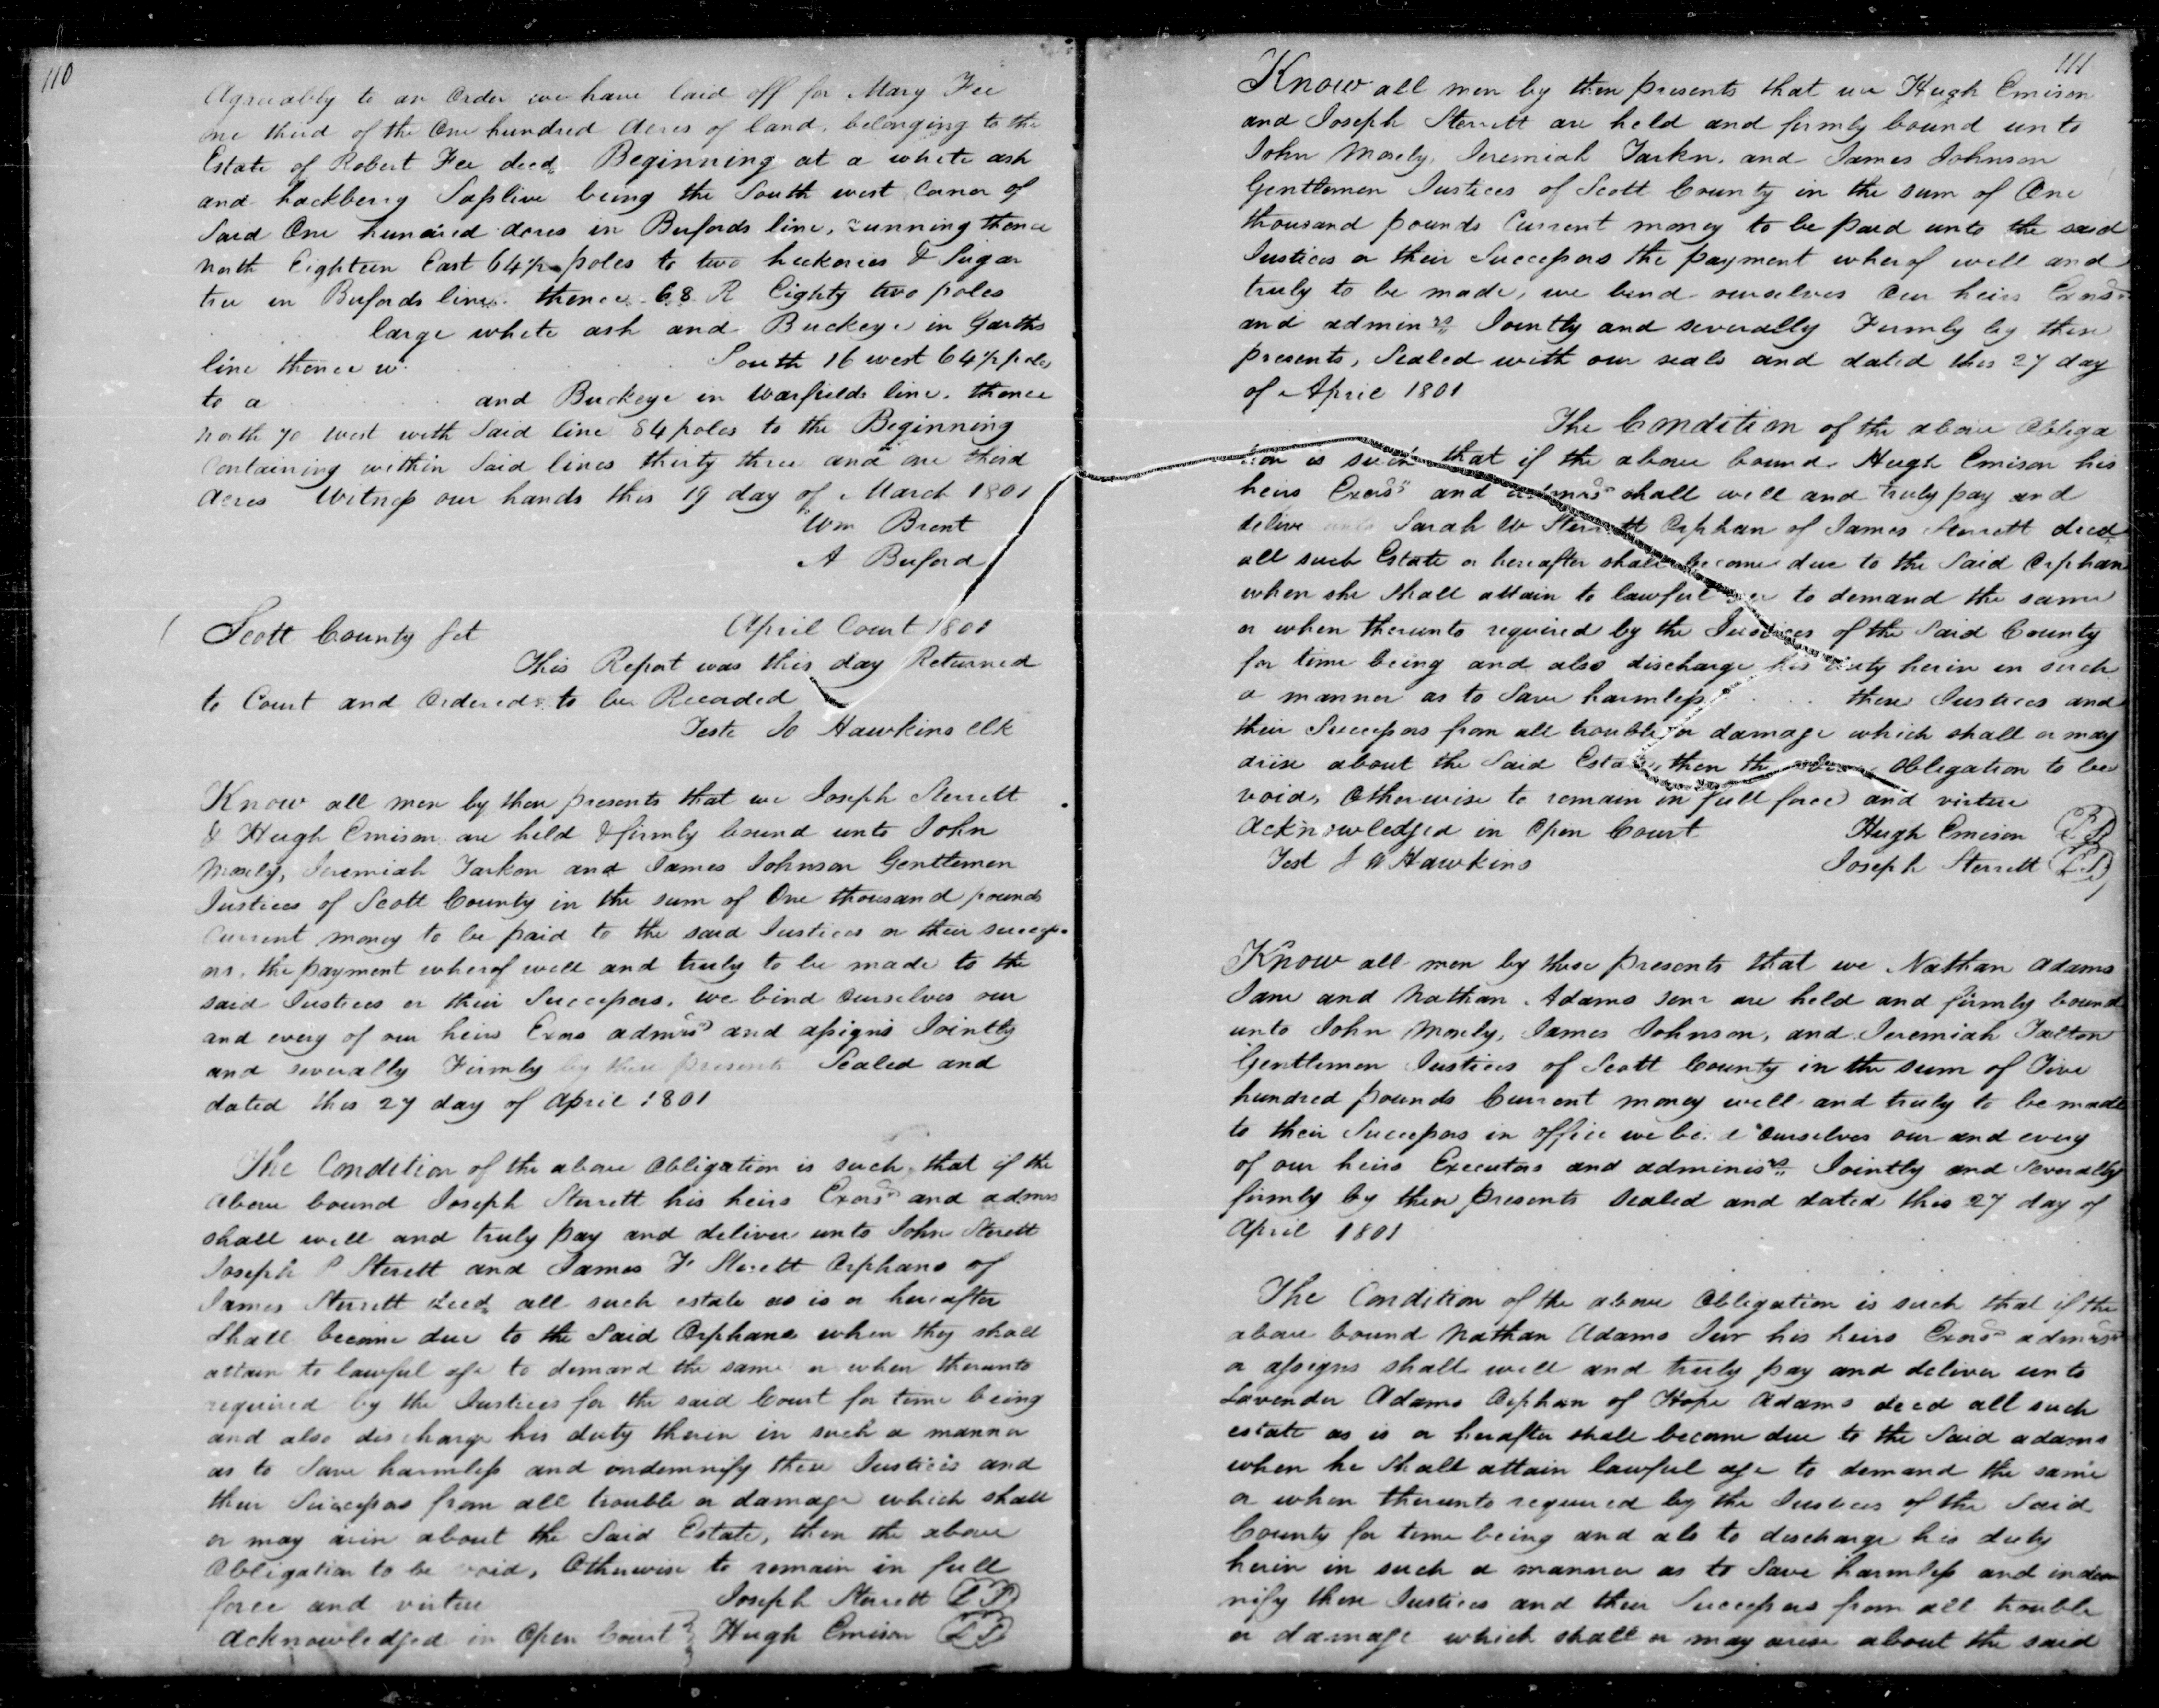 110
Agreeably to an Order we have laid off for Mary Fee
one third of the One hundred Acres of land. belonging to the
Estate of Robert Fee decd. Beginning at a white ash
and hackberry Saplive being the South west Corner of
Said One hundred Acres in Bufords line, running thence
north Eighteen East 64½ poles to two hickories & Sugar
tree in Bufords line. thence 68 R Eighty two poles
large white ash and Buckeye in Garths
line thence w South 16 west 64½ poles
to a and Buckeye in Warfields line. thence
north 70 west with Said line 84 poles to the Beginning
Containing within Said lines thirty three and one third
Acres Witness our hands this 19 day of March 1801
Wm Brent
A Buford
Scott County Sct April Court 1801
This Report was this day Returned
to Court and Ordered to be Recorded
Teste Jo Hawkins Clk
Know all men by these presents that we Joseph Sterrett
& Hugh Emison are held & firmly bound unto John
Mosely, Jeremiah Tarkon and James Johnson Gentlemen
Justices of Scott County in the sum of One thousand pounds
Current money to be paid to the said Justices or their success
ors, the payment wherof well and truly to be made to the
said Justices or their Successors, we bind Ourselves our
and every of our heirs Exrs admrs and assigns Jointly
and severally Firmly by these presents Sealed and
dated this 27 day of April 1801
The Condition of the above Obligation is such, that if the
Above bound Joseph Sterrett his heirs Exors and admrs
shall well and truly pay and deliver unto John Sterett
Joseph P Sterett and James F Sterett Orphans of
James Sterrett decd, all such estate as is or hereafter
Shall become due to the Said Orphans when they shall
attain to lawful age to demand the same or when therunto
required by the Justices for the said Court for time being
and also discharge his duty therin in such a manner
as to Save harmless and indemnify these Justices and
their Successors from all trouble or damage which shall
or may arise about the Said Estate, then the above
Obligation to be void, Otherwise to remain in full
force and virtue Joseph Sterrett LS
Acknowledged in Open Court Hugh Emison LS
111
Know all men by these presents that we Hugh Emison
and Joseph Sterrett are held and firmly bound unto
John Mosely, Jeremiah Tarkn, and James Johnson
Gentlemen Justices of Scott County in the sum of One
thousand pounds Current money to be paid unto the said
Justices or their Successors the payment wherof well and
truly to be made, we bind ourselves Our heirs Exrs
and adminrs Jointly and severally Firmly by these
presents, Sealed with our seals and dated this 27 day
of April 1801
The Condition of the above Obliga
tion is such that if the above bound Hugh Emison his
heirs Exors and admrs shall well and truly pay and
delive unto Sarah W Sterrett Orphan of James Sterrett decd
all such Estate or hereafter shall become due to the Said Orphan
when she shall attain to lawful age to demand the same
or when therunto required by the Justices of the Said County
for time being and also discharge his duty herin in such
a manner as to Save harmless these Justices and
their Successors from all trouble or damage which shall or may
arise about the Said Estate, then the above Obligation to be
void, Otherwise to remain in full force and virtue
Acknowledged in Open Court Hugh Emison LS
Test J Hawkins Joseph Sterrett LS
Know all men by these presents that we Nathan Adams
Junr and Nathan Adams Senr are held and firmly bound
unto John Mosely, James Johnson, and Jeremiah Talton
Gentlemen Justices of Scott County in the sum of Five
hundred pounds Current money well and truly to be made
to their Successors in office we bind Ourselves our and every
of our heirs Executors and adminisrs Jointly and Severally
firmly by these presents Sealed and dated this 27 day of
April 1801
The Condition of the above Obligation is such that if the
above bound Nathan Adams Junr his heirs Exors admrs
or assigns shall well and truly pay and deliver unto
Lavender Adams Orphan of Hope Adams decd all such
estate as is or herafter shall become due to the Said adams
when he Shall attain lawful age to demand the same
or when therunto required by the Justices of the Said
County for time being and als to discharge his duty
herin in such a manner as to Save harmless and indem
nify these Justices and their Successors from all trouble
or damage which shall or may arise about the said